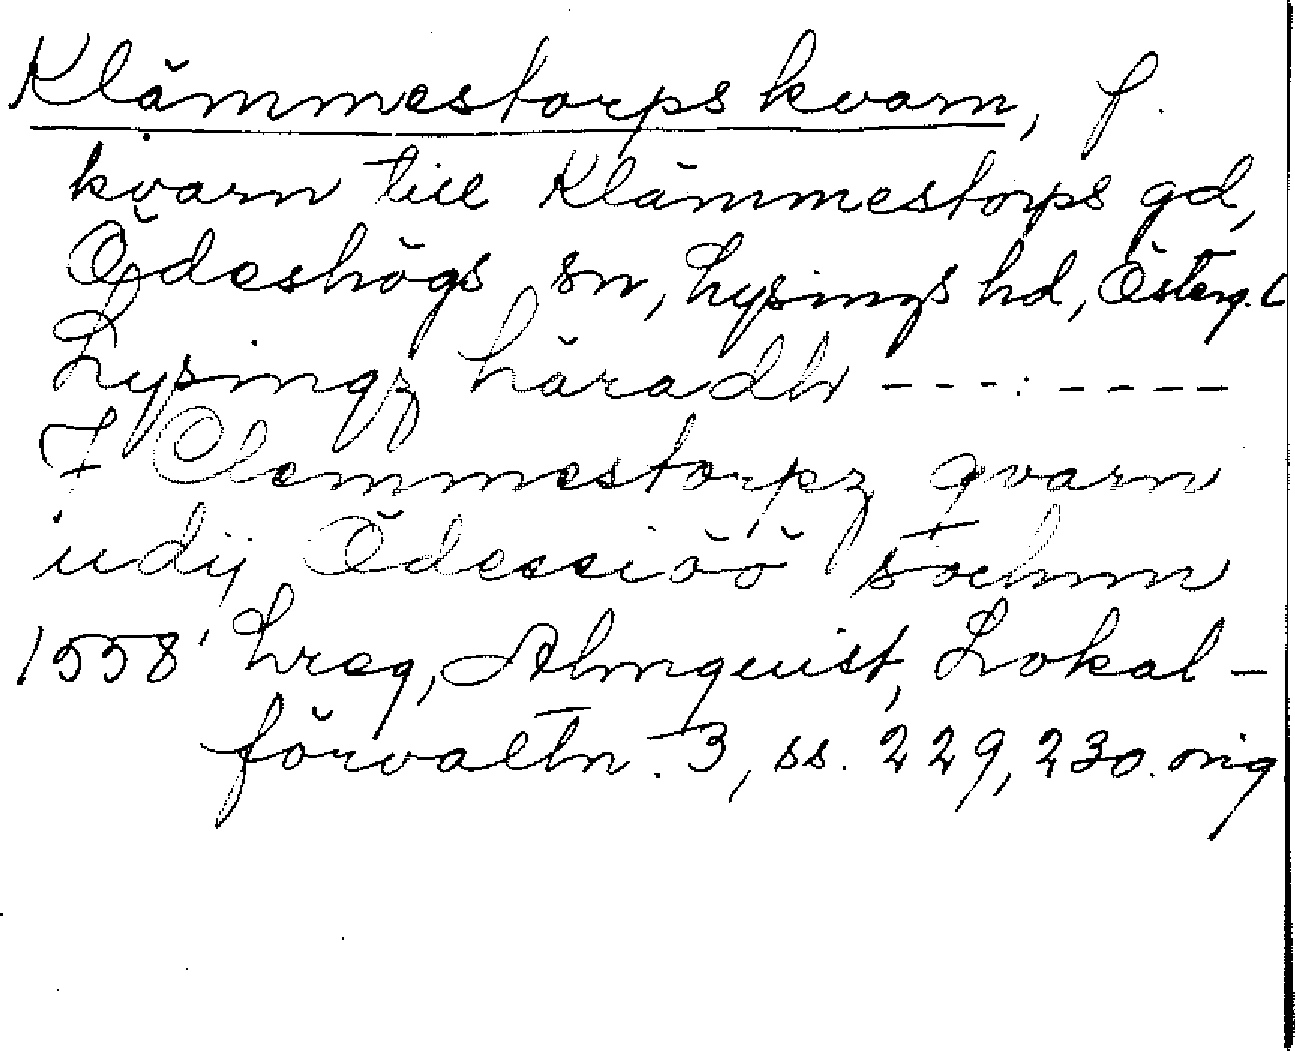 Klämmestorps kvarn, f.
kvarn till Klämmestorps gd,
Ödeshögs sn, Lysings hd, Österg. l
Lysingz häradh --------
J Clemmestorpz qvarn
udij Ödessiöö sochnn
1558 Lreg, Almquist, Lokal-
förvaltn. 3, ss. 229, 230. orig